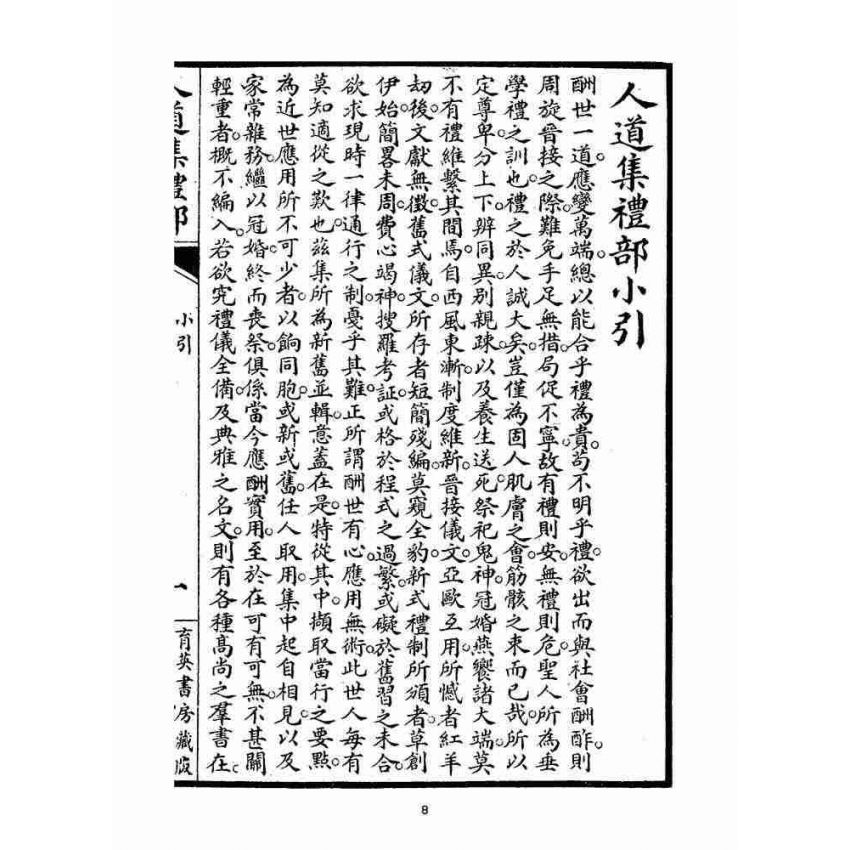 人道集禮部小引
酬世一道。應變萬端。總以能合乎禮為貴。苟不明乎禮。欲出而與社會酬酢。則
周旋晉接之際。難免手足無措。局促不寧。故有禮則安。無禮則危。聖人所為垂
學禮之訓也。禮之於人誠大矣。豈僅為固人肌膚之會。筋骸之束而已哉。所以
定尊卑。分上下。辨同異。別親疎。以及養生送死。祭祀鬼神。冠婚燕饗諸大端。莫
不有禮維繫其間焉。自西風東漸。制度維新。晉接儀文。亞歐互用。所憾者紅羊
劫後。文獻無徵。舊式儀文。所存者短簡殘編。莫窺全豹。新式禮制。所頒者。草創
伊始。簡畧未周。費心竭神。搜羅考証。或格於程式之過繁。或礙於舊習之未合。
欲求現時一律通行之制。憂乎其難。正所謂酬世有心。應用無術。此世人每有
莫知適從之歎也。茲集所為新舊並輯。意蓋在是。特從其中擷取當行之要點。
為近世應用所不可少者。以餉同胞。或新或舊。任人取用。集中起自相見。以及
家常雜務。繼以冠婚。終而喪祭。俱係當今應酬實用。至於在可有可無。不甚關
輕重者。概不編入。若欲究禮儀全備。及典雅之名文。則有各種高尚之羣書在。
人道集禮部
小引
一
育英書房藏版
8